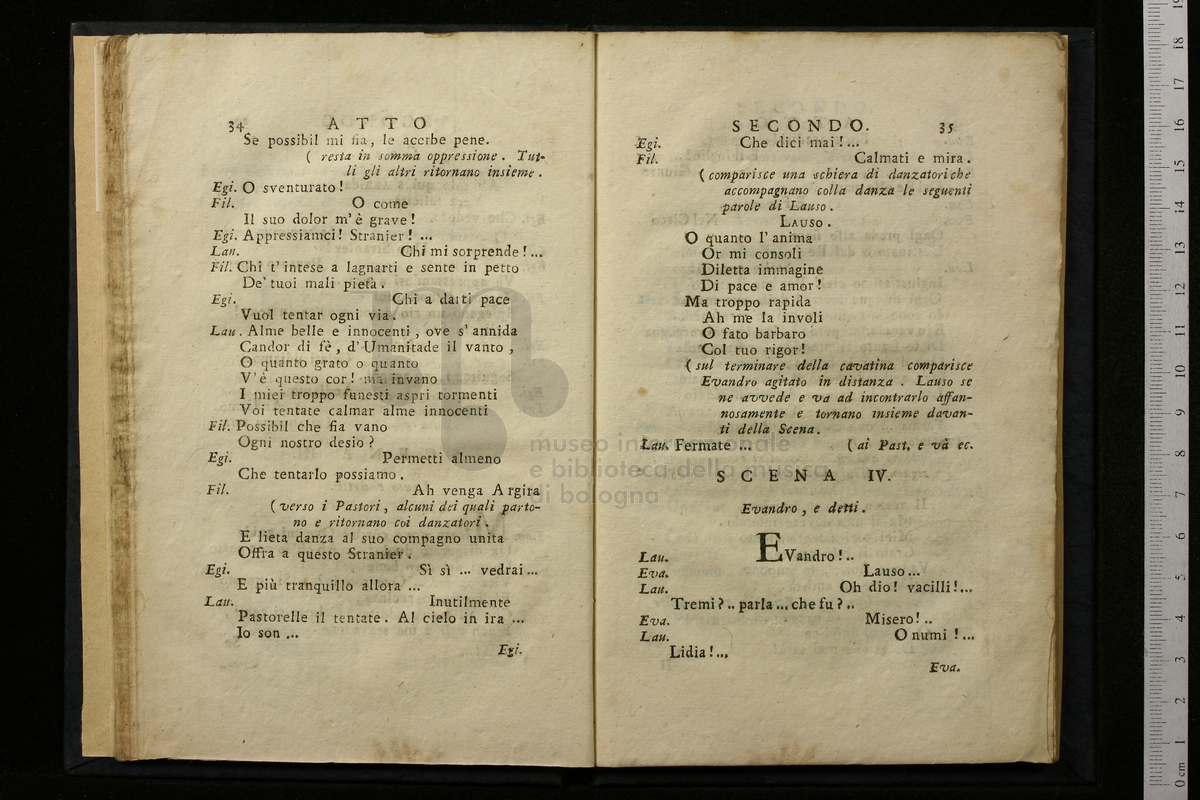 34 ATTO
Se possibil mi fia, le acerbe pene.
( resta in somma oppressione. Tut-
ti gli altri ritornano insieme.
Egi. O sventurato!
Fil. O come
Il suo dolor m'è grave!
Egi. Appressiamci! Stranier! ...
Lau. Chi mi sorprende!...
Fil. Chi t'intese a lagnarti e sente in petto
De' tuoi mali pietà.
Egi. Chi a darti pace
Vuol tentar ogni via.
Lau. Alme belle e innocenti, ove s'annida
Candor di fè, d'Umanitade il vanto,
O quanto grato o quanto
V'è questo cor! ma invano
I miei troppo funesti aspri tormenti
Voi tentate calmar alme innocenti
Fil. Possibil che fia vano
Ogni nostro desio?
Egi. Permetti almeno
Che tentarlo possiamo.
Fil. Ah venga Argira
( verso i Pastori, alcuni dei quali parto-
no e ritornano coi danzatori.
E lieta danza al suo compagno unita
Offra a questo Stranier.
Egi. Sì sì ... vedrai...
E più tranquillo allora ...
Lau. Inutilmente
Pastorelle il tentate. Al cielo in ira ...
Io son ...
Egi.
SECONDO. 35
Egi. Che dici mai!...
Fil. Calmati e mira.
( comparisce una schiera di danzatori che
accompagnano colla danza le seguenti
parole di Lauso.
LAUSO.
O quanto l'anima
Or mi consoli
Diletta immagine
Di pace e amor!
Ma troppo rapida
Ah me la involi
O fato barbaro
Col tuo rigor!
( sul terminare della cavatina comparisce
Evandro agitato in distanza. Lauso se
ne avvede e va ad incontrarlo affan-
nosamente e tornano insieme davan-
ti della Scena.
Lau. Fermate ... ( ai Past. e và ec.
SCENA IV.
Evandro, e detti.
Lau. EVandro!..
Eva. Lauso...
Lau. Oh dio! vacilli!...
Tremi?.. parla ... che fu?..
Eva. Misero!..
Lau. O numi!...
Lidia!...
Eva.
museo internazionale
e biblioteca della musica
di bologna
0 cm 1 2 3 4 5 6 7 8 9 10 11 12 13 14 15 16 17 18 19